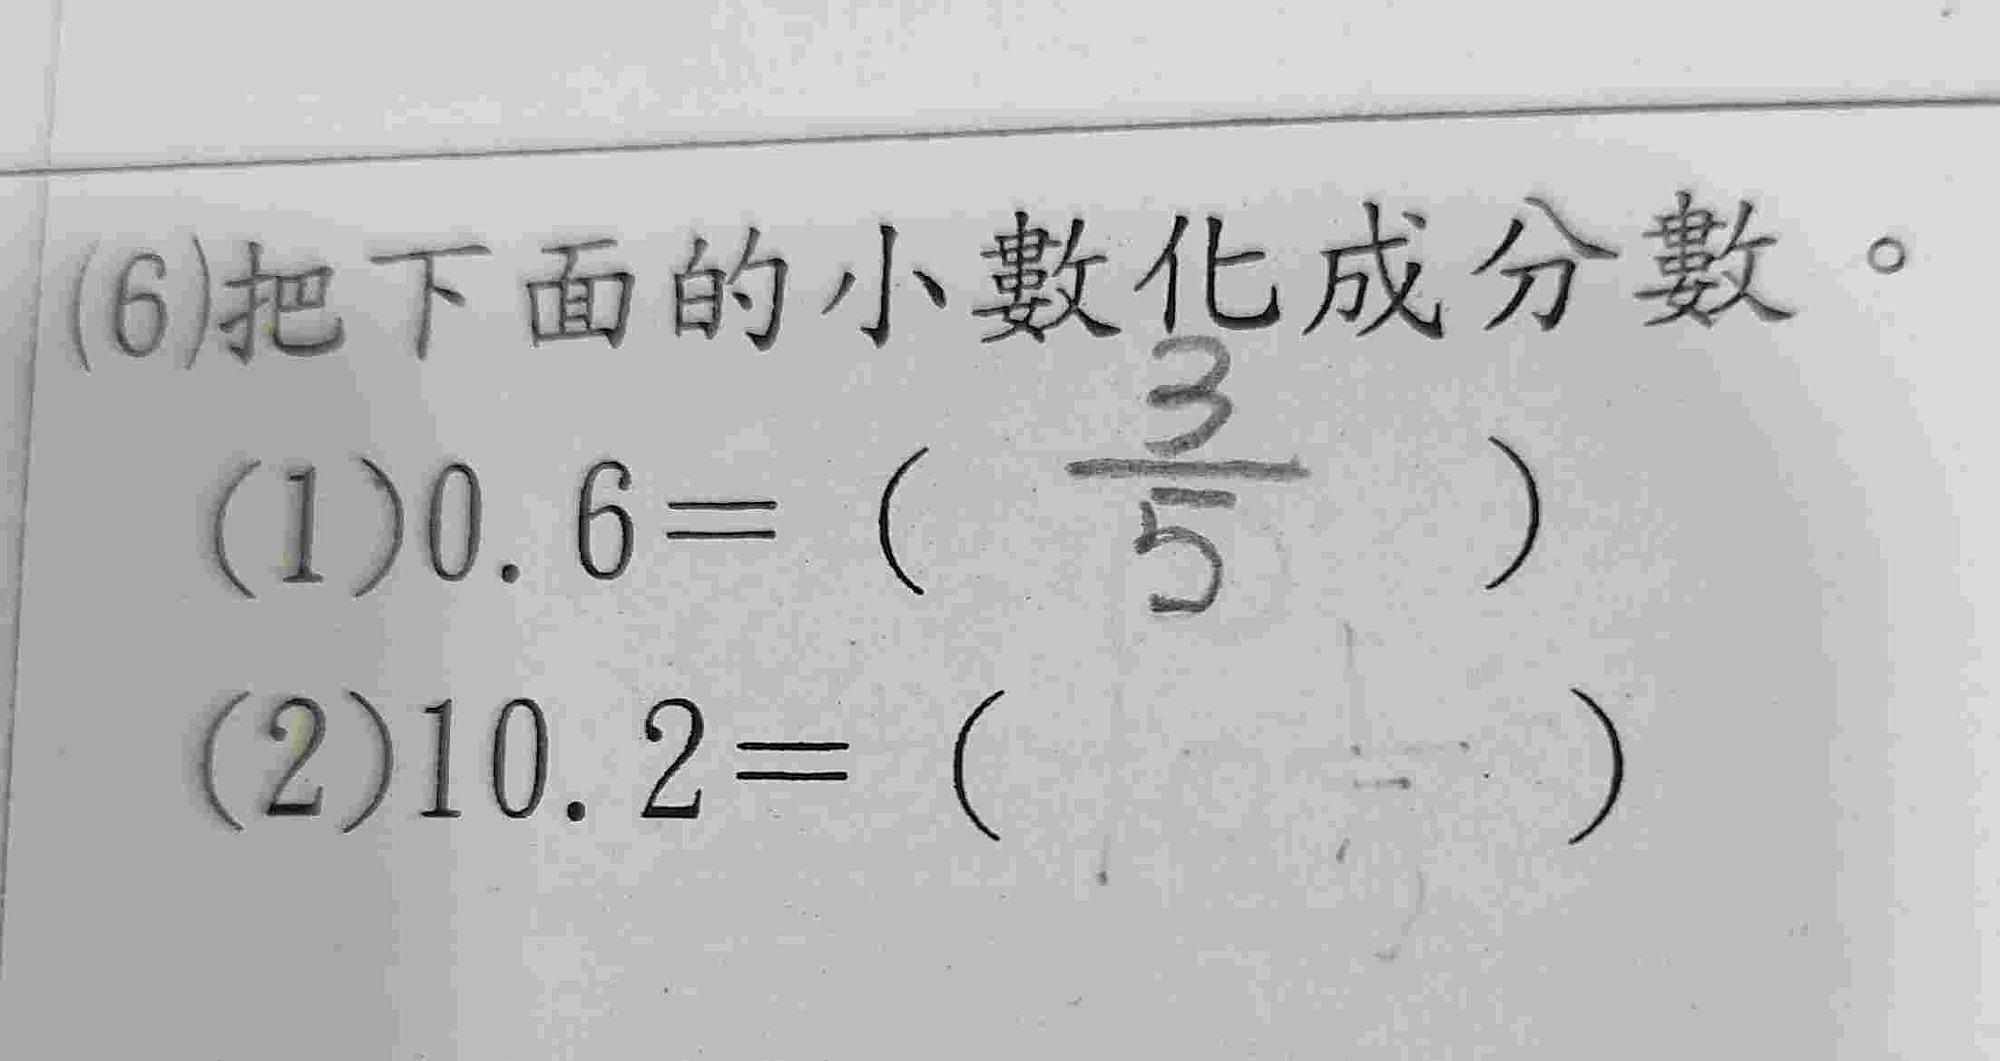 (6)把下面的小數化成分數。
(1)0.6=( 3/5 )
(2)10.2=( )